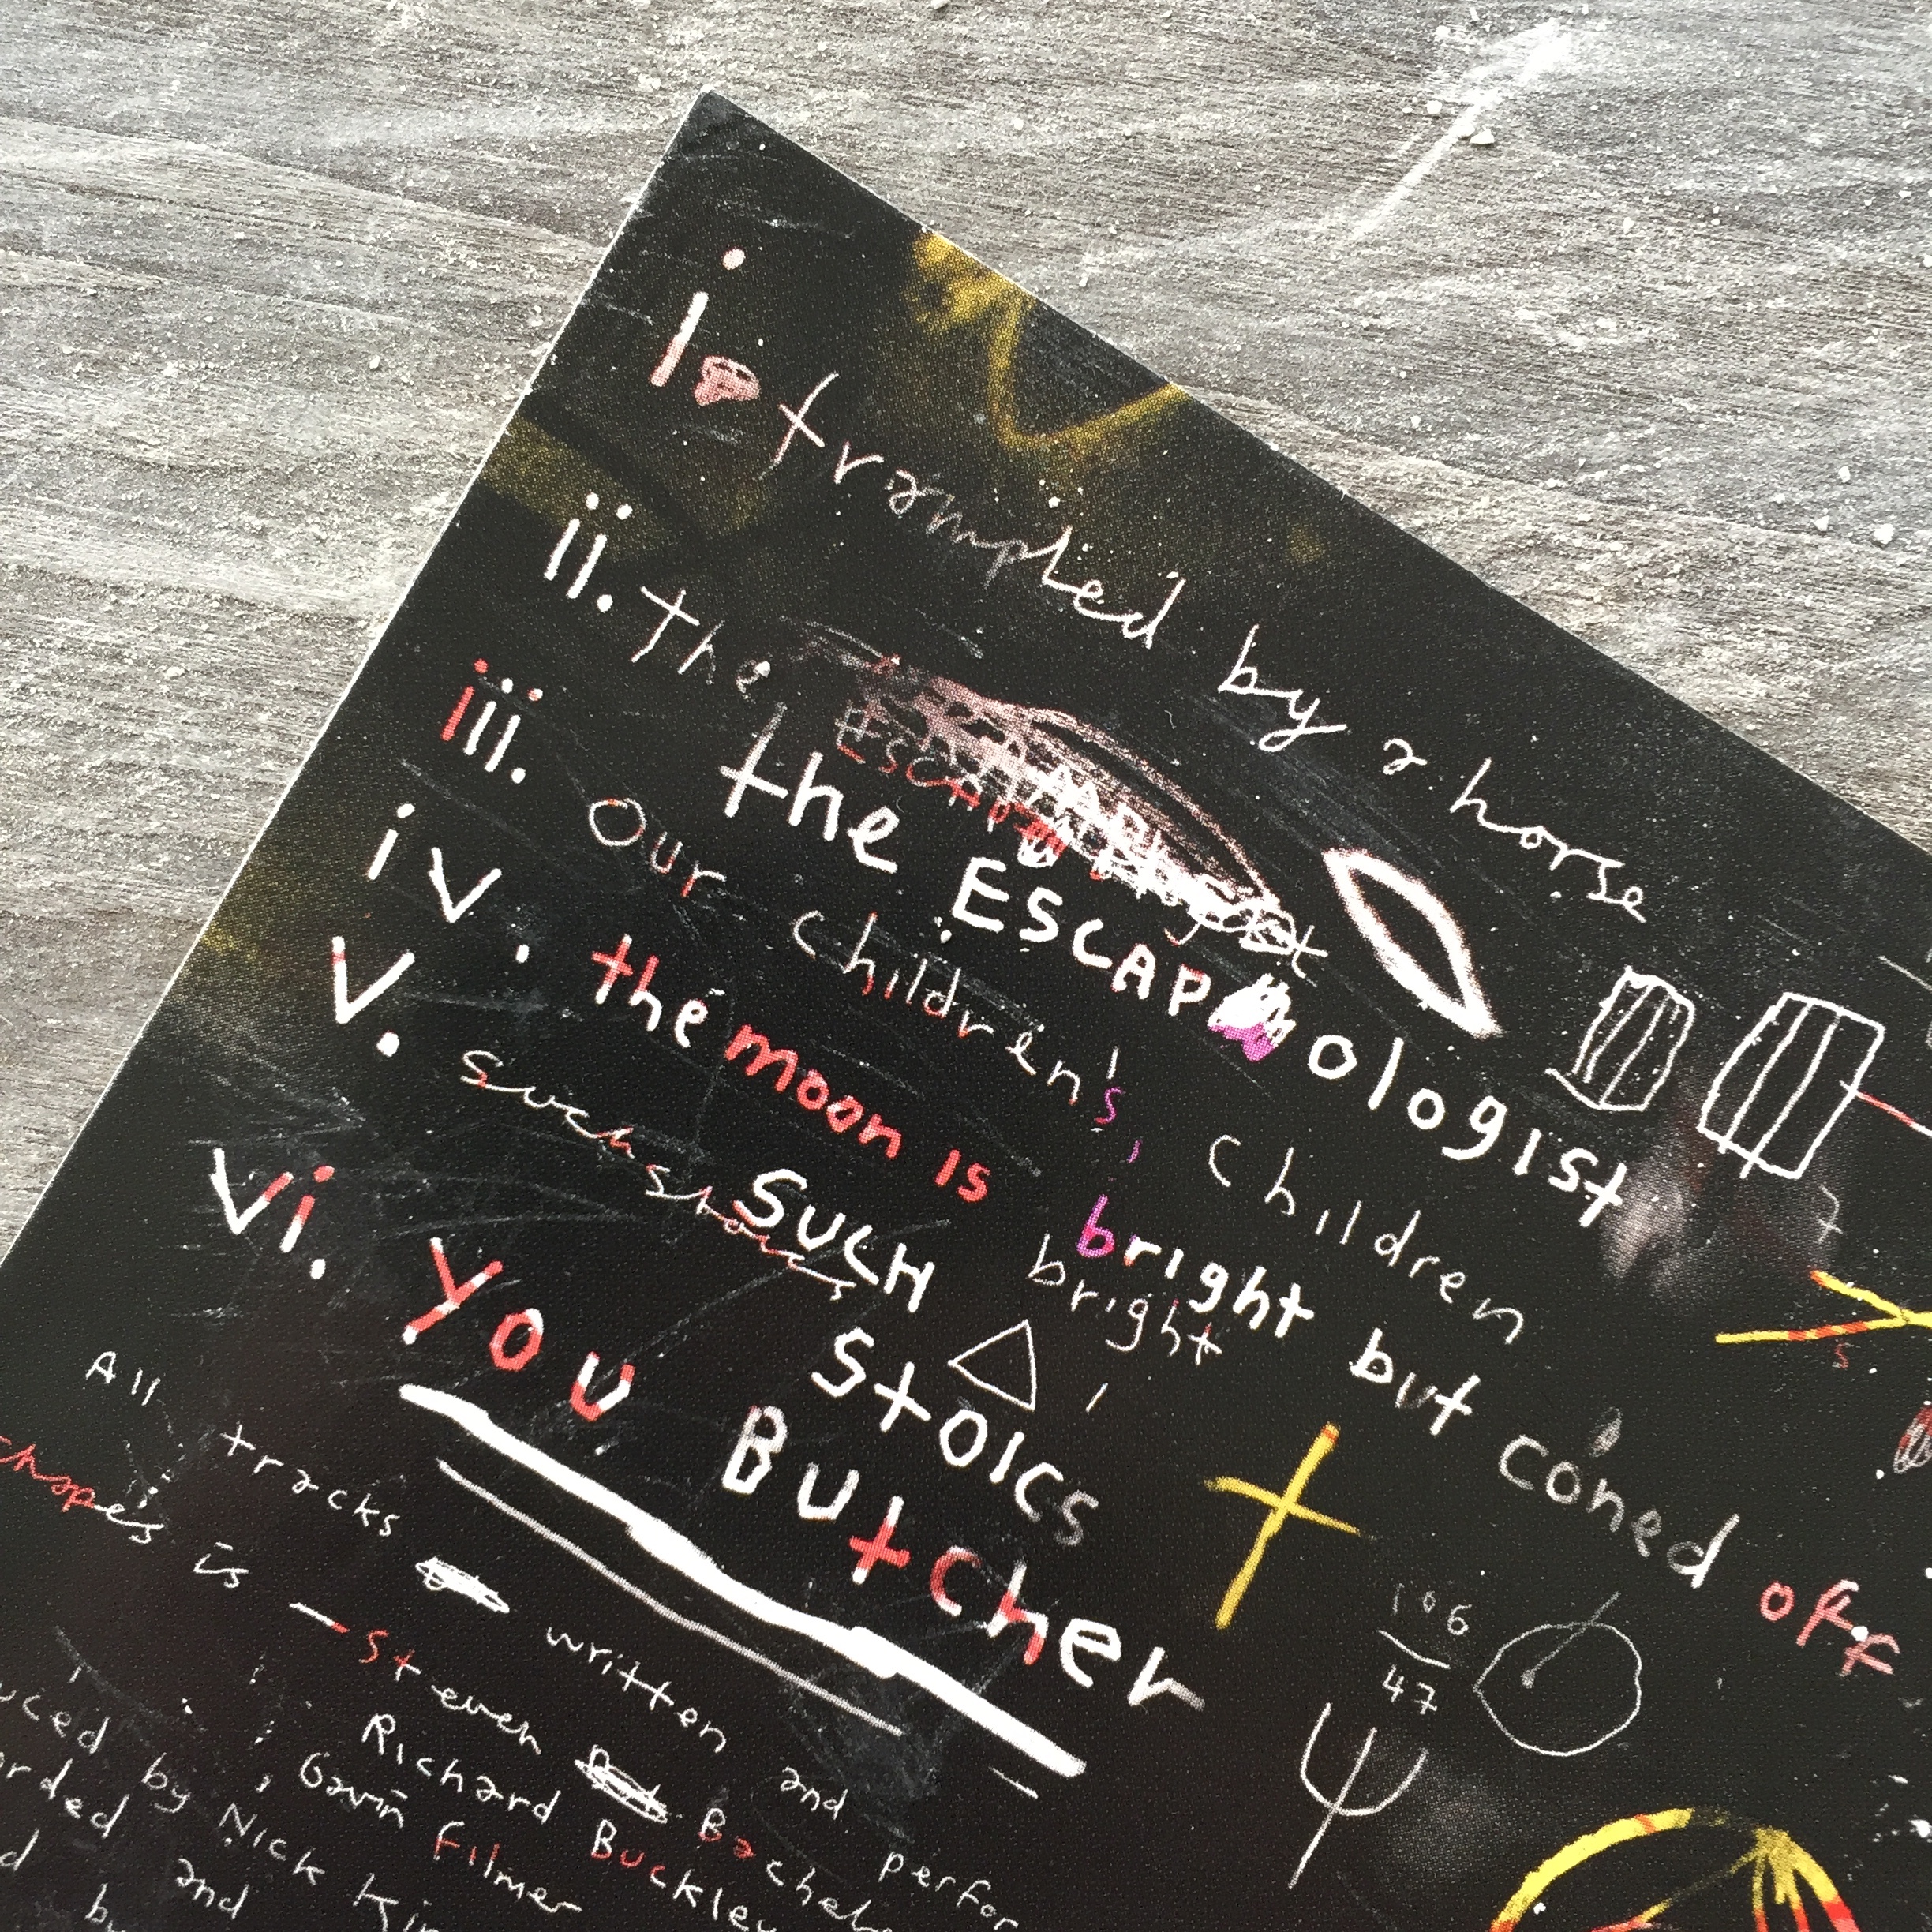 i trampled by a horse
ii. the
the ESCAP ologist
iii. Our children's children
iv. the moon is bright but coned off
bright
v. such stoics
SUCH STOICS
vi. you Butcher
106
47
All tracks written and perfor
chapes is - Steven
Richard Buckley
, Gavin Filmer
uced by Nick Kin
orded and
d by